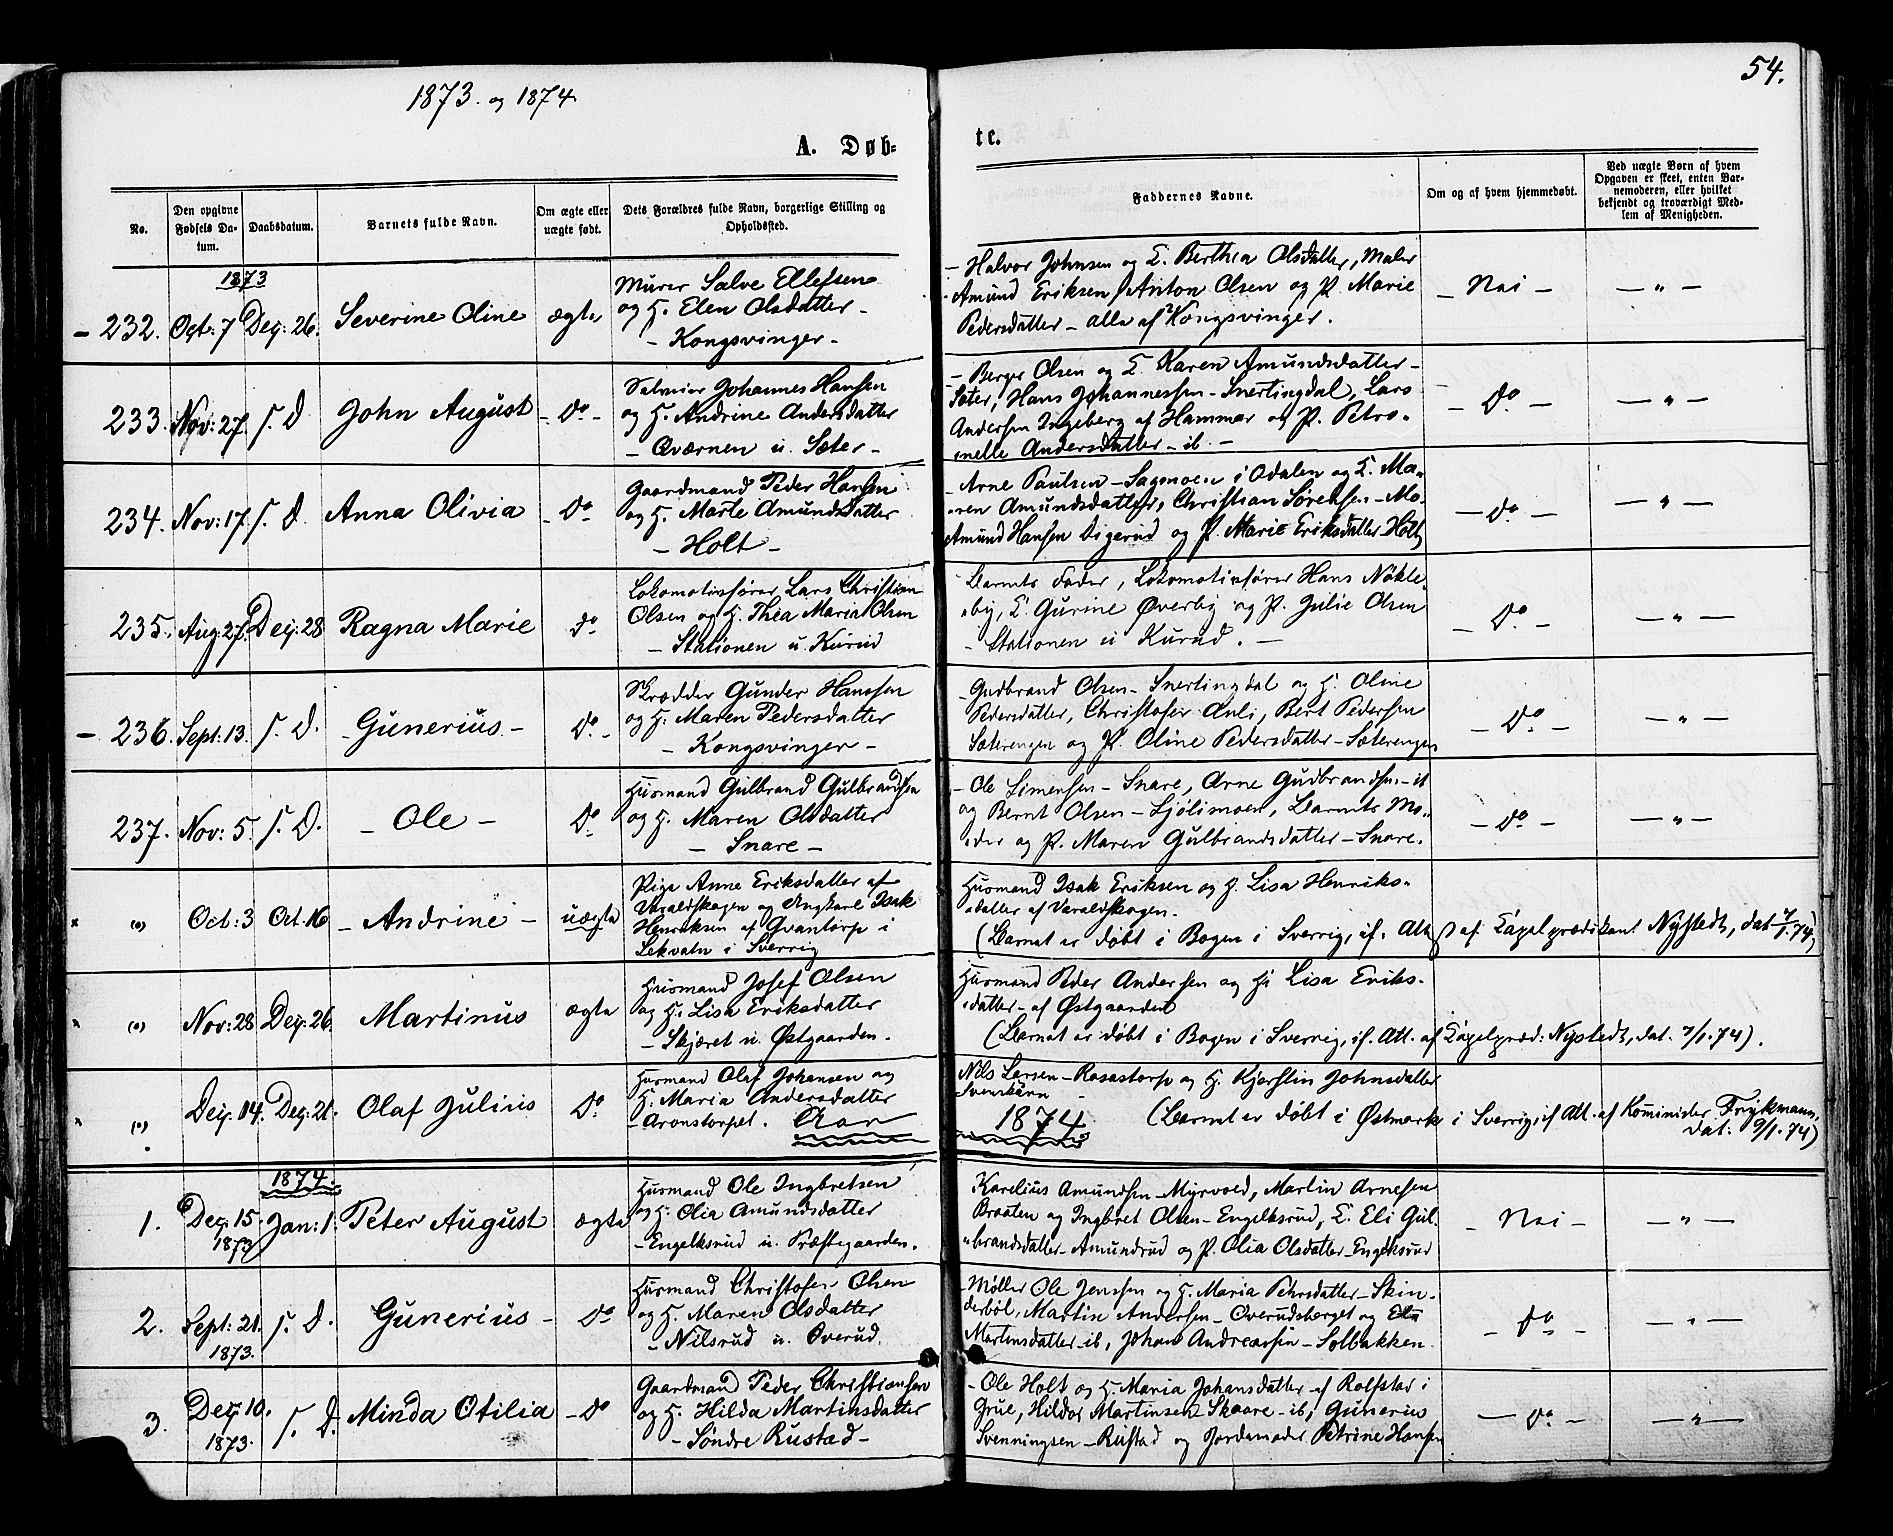 54.
1873. og 1874
A. Døb-
te.
No.
Den opgivne
Fødsels Da-
tum.
Daabsdatum.
Barnets fulde Navn.
Om ægte eller
uægte født.
Dets Forældres fulde Navn, borgerlige Stilling og
Opholdssted.
Faddernes Navne.
Om og af hvem hjemmedøbt.
Ved uægte Børn af hvem
Opgaven er skeet, enten Bar-
nemoderen, eller hvilket
bekjendt og troværdigt Med-
lem af Menigheden.
1873
– 232. Oct: 7 Dec: 26. Severine Oline ægte
Murer Salve Ellefsen
og H. Elen Olsdatter –
– Kongsvinger –
– Halvor Johnsen og K. Berthea Olsdatter, Maler
Amund Eriksen, Anton Olsen og P. Marie
Pedersdatter – alle af Kongsvinger.
– Nei – – " –
233. Nov: 27. s. D. John August – do –
Johannes Hansen
og H. Andrine Andersdatter
– Qværnen u. Sæter –
– Berger Olsen og K. Karen Amundsdatter –
Sæter, Hans Johannessen – Snertingdal, Lars
Andersen Ingeberg af Hammar og P. Petro-
nelle Andersdatter – ib. –
– do – – " –
234. Nov: 17. s. D. Anna Olivia – do
Gaardmand Peder Hansen
og H. Marte Amundsdatter
– Holt –
– Arne Paulsen – Sagmoen i Odalen og K. Ma-
ren Amundsdatter, Christian Sørensen – Mo
Amund Hansen Digerud og P. Marie Eriksdatter Holt
– do – – " –
235. Aug: 27. Dec: 28 Ragna Marie do
Lokomotivfører Lars Christian
Olsen og H. Thea Maria Olsen
– Stationen u. Kurud
Barnets Fader, Lokomotivfører Hans Nökle-
by, K. Gurine Øverby og P. Julie Olsen
– Stationen u Kurud. –
– do – – " –
– 236. Sept: 13. s. D. – Gunerius – do –
Skrædder Gunder Hanssen
og H. Maren Pedersdatter
– Kongsvinger –
Gudbrand Olsen – Snertingdal og H. Oline
Pedersdatter, Christofer Anli, Bert Pedersen
Sæterengen og P. Oline Pedersdatter – Sæterengen
– do – – " –
237. Nov: 5. s. D. – Ole – do
Husmand Gulbrand Gulbrandsen
og H. Maren Olsdatter
– Snare –
– Ole Simensen – Snare, Arne Gudbrandsen – ib
og Bernt Olsen – Sjölimoen, Barnets Mo-
der og P. Maren Gulbrandsdatter – Snare.
– do – – " –
× (o) Oct: 3 Oct. 16 – Andrine – uægte
Pige Anne Eriksdatter af
Varaldskogen og Ungkarl Isak
Henriksen af Qvantorp i
Lekvatn i Sverrig
Husmand Isak Eriksen og H. Lisa Henriks-
datter af Varaldskogen.
(Barnet er døbt i Bogen i Sverrig, if. Att. af Capelprædikant Nystedt, dat 7/1.74)
× (o) Nov: 28 Dec: 26. Martinus ægte
Husmand Josef Olsen
og H. Lisa Eriksdatter
– Skjæret u. Østgaarden.
Husmand Peder Andersen og H. Lisa Eriks-
datter – af Østgaarden
(Barnet er døbt i Bogen i Sverrig, if. Att. af Capelpræd: Nystedt, dat. 7/1.74).
× (o) Dec: 14. Dec: 21. Olaf Julius do
Husmand Olaf Johansen og
H. Maria Andersdatter
– Aronstorpet. Aar
Nils Larsen – Rosastorp og H. Kjerstin Johnsdatter
1874
(Barnet er døbt i Østmark i Sverrig, if Att. af Komminister Frykmann,
dat: 9/1.74)
1874.
1. Dec: 15. 1873 Jan: 1. Peter August ægte
Husmand Ole Ingbretsen
og H. Olia Amundsdatter
– Engelksrud u. Præstegaarden.
Karelius Amundsen – Myrvold, Martin Arnesen
Braaten og Ingbret Olsen – Engelksrud, K. Eli Gul-
brandsdatter – Amundrud og P. Olia Olsdatter – Engelksrud
– Nei – – " –
2. Sept: 21. 1873. s. D. Gunerius – do
Husmand Christofer Olsen
og H. Maren Olsdatter
– Nilsrud u. Overud.
– Møller Ole Jensen og H. Maria Pehrsdatter – Skin-
derböl, Martin Andersen – Overudsberget og Eli
Martinsdatter – ib, Johan Andreassen – Solbakken.
– do – – " –
3. Dec: 10. 1873. s. D. Minda Otilia – do
Gaardmand Peder Christiansen
og H. Hilda Martinsdatter
– Søndre Rustad –
– Ole Holt og H. Maria Johansdatter af Rolfstad i
Grue, Hildor Martinsen Skaare – ib, Gunerius
Svenningsen – Rustad og Jordemoder Petrine Hansen
– do – – " –